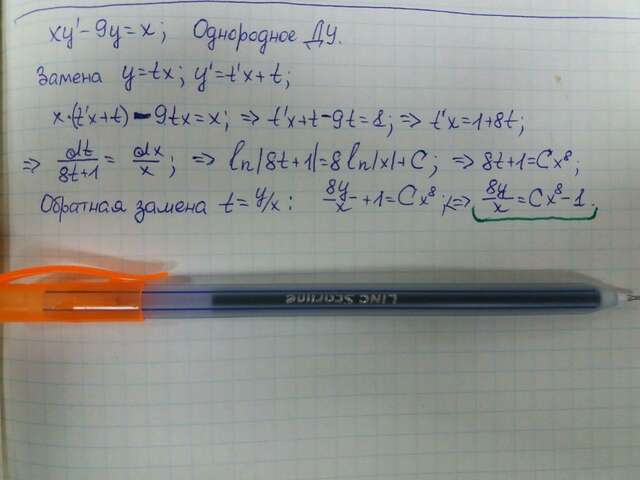 xy'-9y=x; Однородное ДУ.
Замена y=tx; y'=t'x+t;
x·(t'x+t)-9tx=x; ⇒ t'x+t-9t=1; ⇒ t'x=1+8t;
⇒ dt/8t+1 = dx/x; ⇒ ln|8t+1|=8ln|x|+C; ⇒ 8t+1=Cx⁸;
Обратная замена t=y/x: 8y/x+1=Cx⁸; ⇒ 8y/x=Cx⁸-1.
LINC Starline